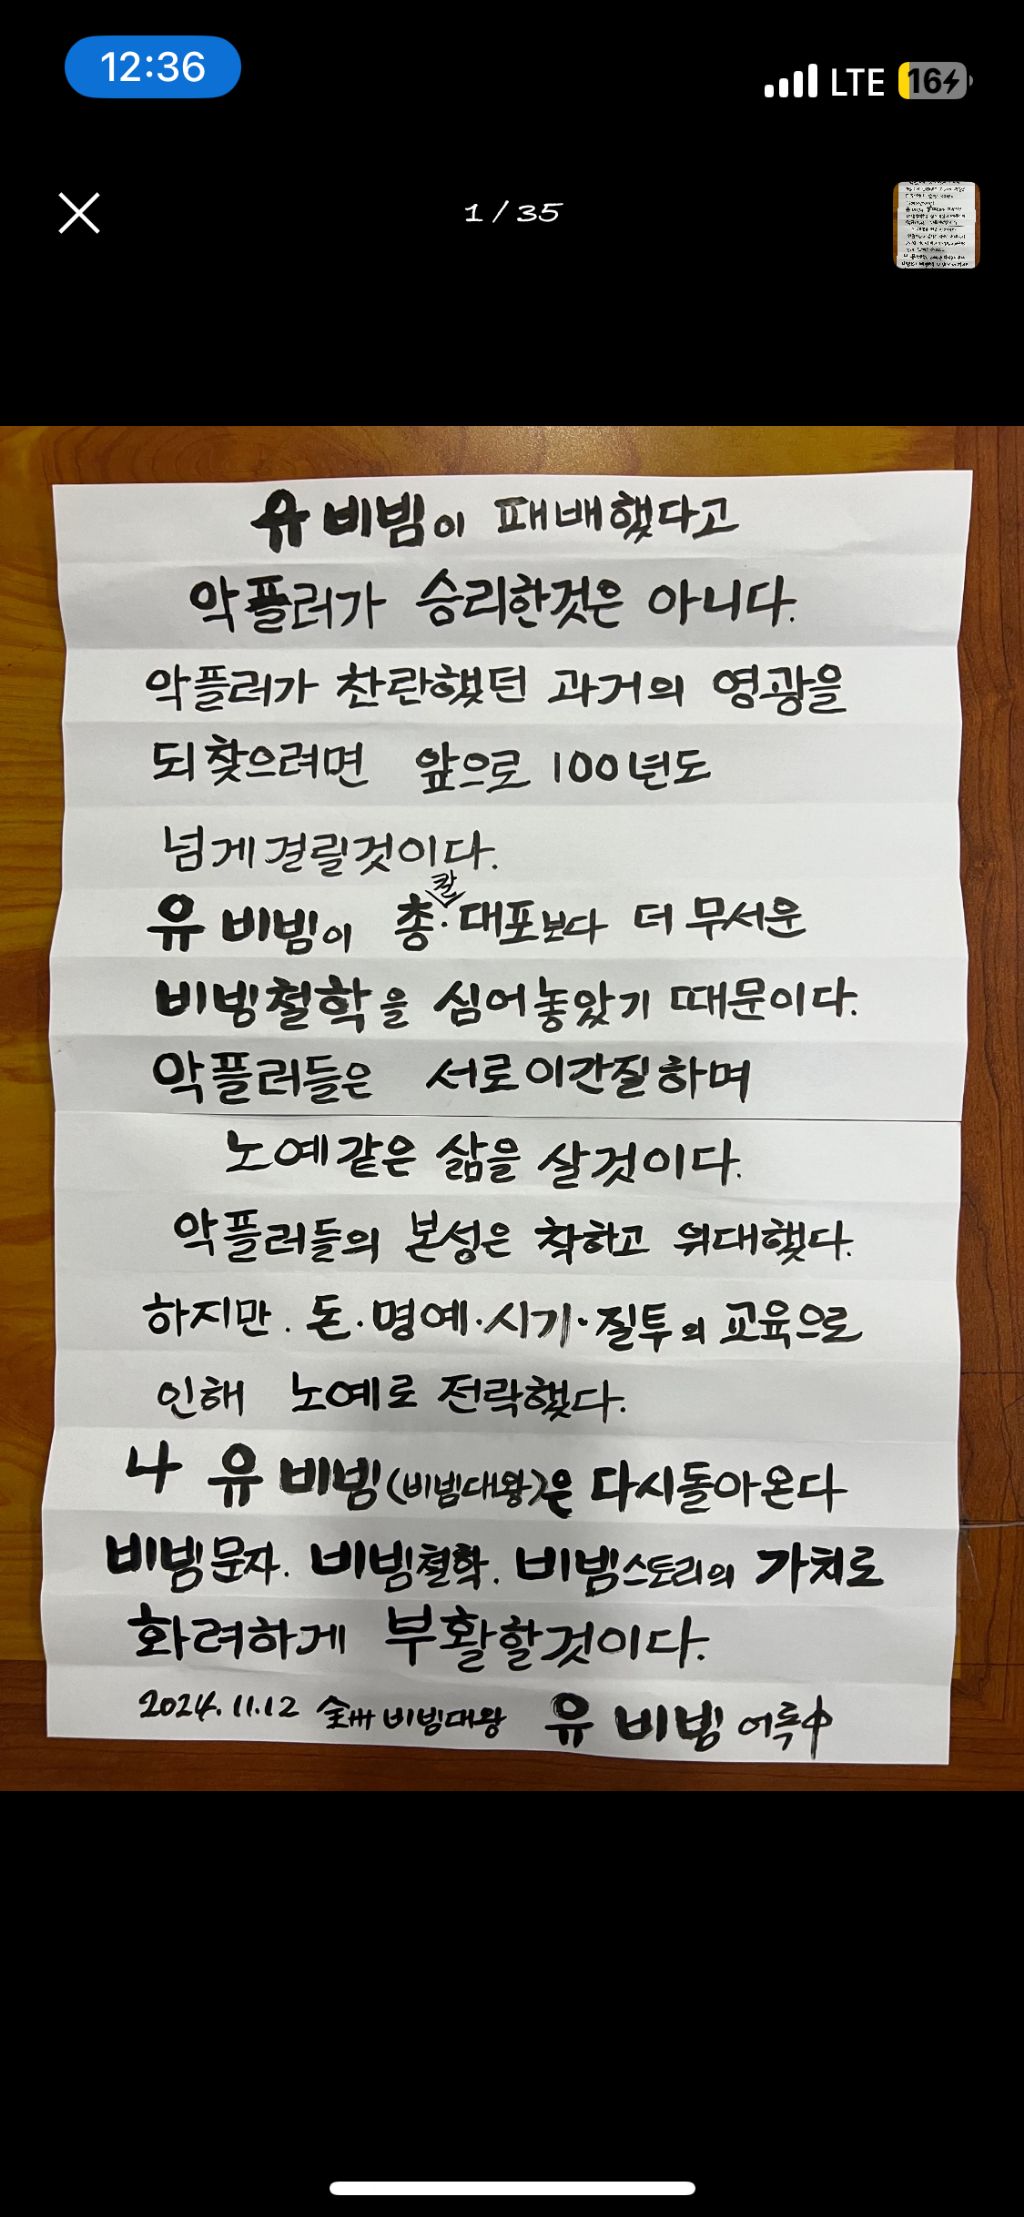 12:36
LTE 16
1 / 35
유비빔이 패배했다고
악플러가 승리한것은 아니다.
악플러가 찬란했던 과거의 영광을
되찾으려면 앞으로 100년도
넘게 걸릴것이다.
칼
유비빔이 총·대포보다 더 무서운
비빔철학을 심어놓았기 때문이다.
악플러들은 서로이간질하며
노예같은 삶을 살것이다.
악플러들의 본성은 착하고 위대했다.
하지만. 돈·명예·시기·질투의 교육으로
인해 노예로 전락했다.
나 유비빔(비빔대왕)은 다시돌아온다
비빔문자. 비빔철학. 비빔스토리의 가치로
화려하게 부활할것이다.
2024.11.12 全州 비빔대왕 유비빔 어록中